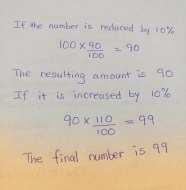 If the number is reduced by 10%
100 × 90/100 = 90
The resulting amount is 90
If it is increased by 10%
90 × 110/100 = 99
The final number is 99